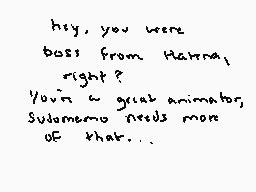 hey, you were
boss from Hatena,
right?
You're a great animator,
Sudomemo needs more
of that...